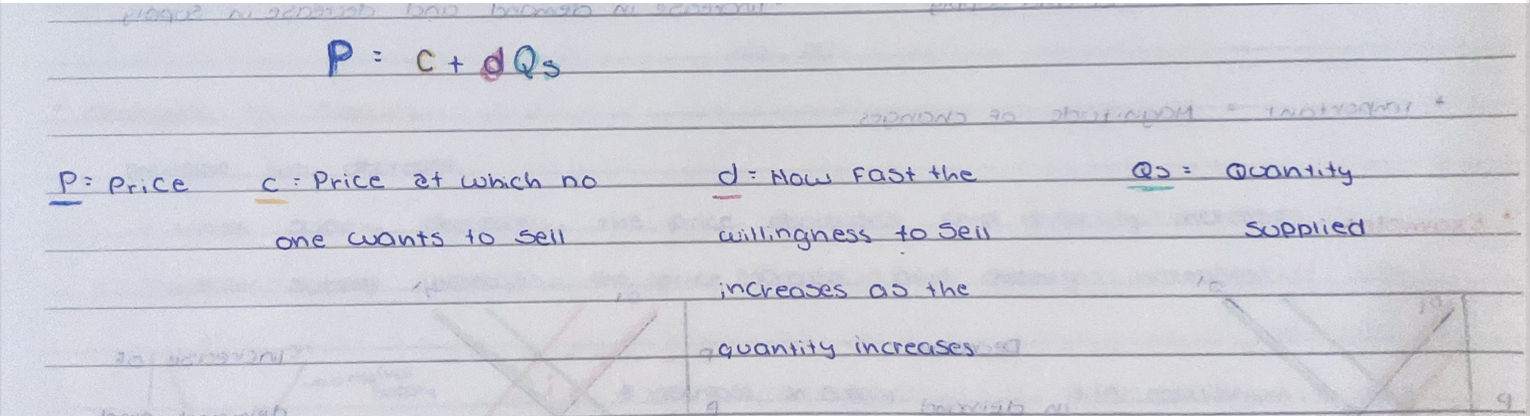 P = c + dQs
P = Price c = Price at which no d = How Fast the Qs = Quantity
one wants to sell willingness to sell supplied
increases as the
quantity increases